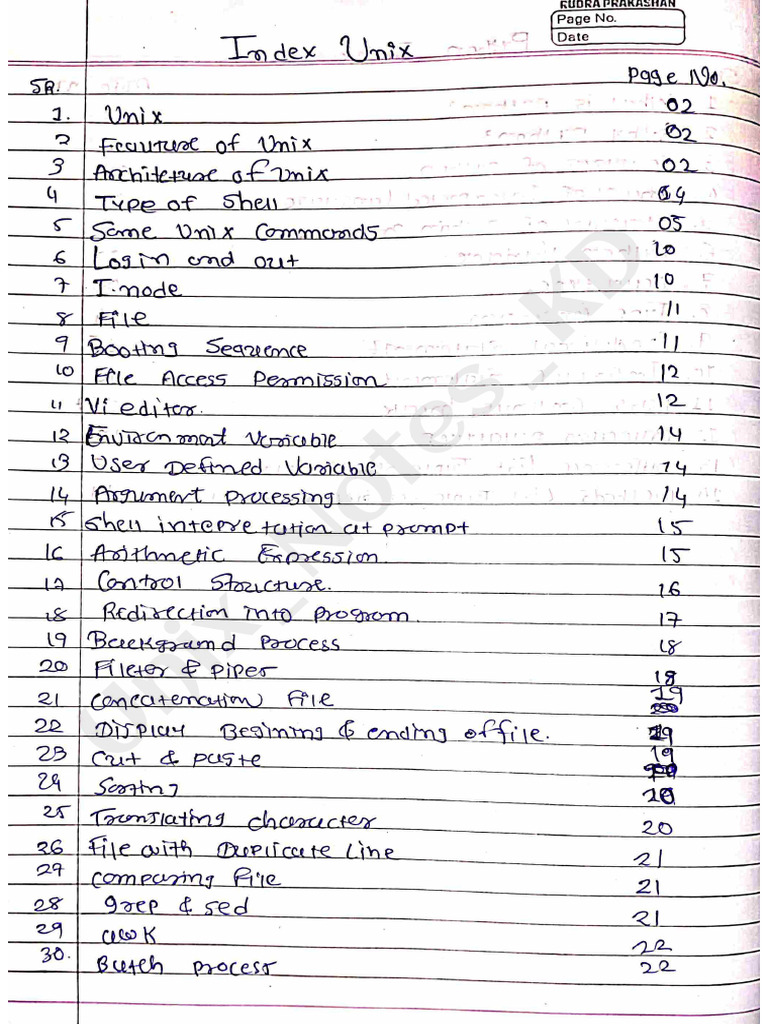 RUDRA PRAKASHAN
Page No.
Date
Index Unix
SR. Page No.
1. Unix 02
2 Feauture of Unix 02
3 Architeture of Unix 02
4 Type of Shell 04
5 Some Unix Commands 05
6 Login and out 10
7 I-mode 10
8 File 11
9 Booting Sequence 11
10 File Access Permission 12
11 Vi editor. 12
12 Enviranment Variable 14
13 User Defined Variable 14
14 Argument processing 14
15 Shell intepretation at prompt 15
16 Arithmetic Expression 15
17 Control Structure. 16
18 Redirection into program. 17
19 Background Process 18
20 Fileter & pipes 18
21 Concatenation file 19
22 Display Begining & ending of file. 19
23 Cut & paste 19
24 Sorting 20
25 Translating character 20
26 File with Duplicate Line 21
27 Comparing file 21
28 grep & sed 21
29 awk 22
30. Batch process 22
Unix_Notes_KD